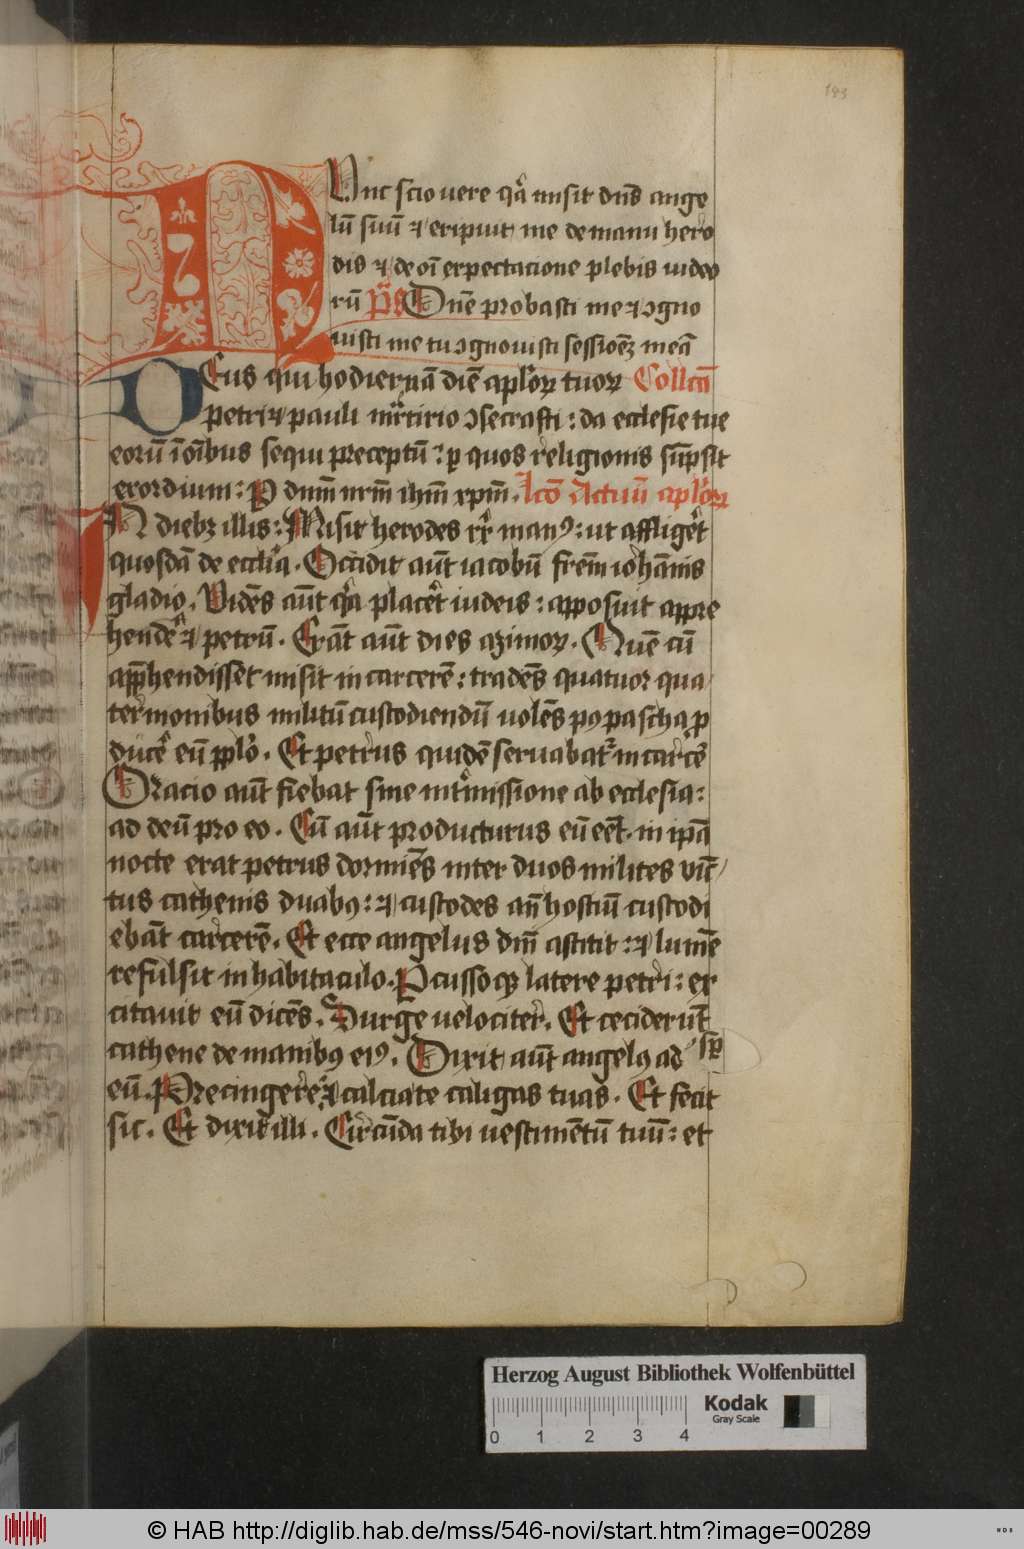 143
NVnc scio vere qr̄a misit dn̄s ange
lū suū ⁊ eripuit me de manu hero
dis ⁊ de oī expectacione plebis iudeo
rū p̄s Dn̄e probasti me ⁊ ꝯgno
uisti me tu ꝯgnouisti sessionē meā
DEus qui hodiernā diē aploꝝ tuoꝝ Collcā
petri ⁊ pauli mr̄tirio ꝯsecrasti : da ecclesie tue
eorū ī oībus sequi preceptū : ꝑ quos religionis sūpsit
exordium : P dnm̄ nrm̄ ihm̄ xpm̄ . lc̄o Actuū aploꝝ
IN diebꝫ illis : Misit herodes rex manꝰ : ut affliget
quosdā de eccl̄ia . Occidit aūt iacobū frēm iohānis
gladio . Vidēs aūt qr̄a placet iudeis : apposuit appre
hendē ⁊ petrū . Erāt aūt dies azimoꝝ . Quē cū
app̄hendisset misit in carcerē : tradēs quatuor qua
ternionibus militū custodiendū uolēs pꝰ pascha ꝓ
ducē eū pplo . Et petrus quidē seruabat᷑ in carcē
Oracio aūt fiebat sine int̄missione ab ecclesia :
ad deū pro eo . Cū aūt producturus eū eēt . in ip̄a
nocte erat petrus dormiēs inter duos milites vīc
tus cathenis duabꝰ : ⁊ custodes an̄ hostiū custodi
ebāt carcerē . Et ecce angelus dn̄i astitit : ⁊ lumē
refulsit in habitaculo . Pcussoqꝫ latere petri : ex
citauit eū dicēs . Surge uelociter . Et ceciderūt
cathene de manibꝰ eiꝰ . Dixit aūt angelꝰ ad
eū . Precingere ⁊ calciate caligas tuas . Et fecit
sic . Et dixit illi . Circūda tibi uestimētū tuū : et
Herzog August Bibliothek Wolfenbüttel
0 1 2 3 4
Kodak
Gray Scale
© HAB http://diglib.hab.de/mss/546-novi/start.htm?image=00289